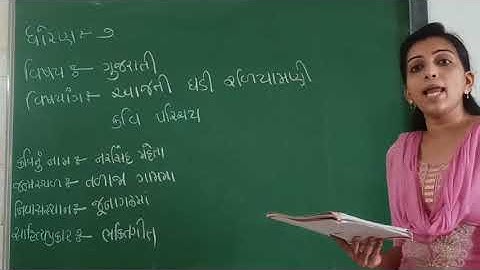 ધોરણ :- ૭
વિષય :- ગુજરાતી
વિષયાંગ :- આજની ઘડી રળિયામણી
કવિ પરિચય
કવિનું નામ :- નરસિંહ મહેતા
જન્મસ્થળ :- તળાજા ગામમાં
નિવાસસ્થાન :- જૂનાગઢમાં
સાહિત્યપ્રકાર :- ભક્તિગીત